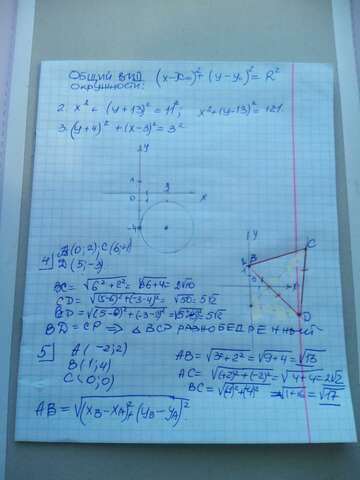 Общий вид (x-x₀)²+(y-y₀)²=R²
окружности:
2. x²+(y+13)²=11²; x²+(y-13)²=121
3. (y+4)²+(x-3)²=3²
y
1
1
3
x
-4
4) B(0;2); C(6;4)
D(5;-3)
y
B
C
D
BC=√6²+2²=√36+4=2√10
CD=√(5-6)²+(-3-4)²=√50=5√2
BD=√(5-0)²+(-3-2)²=√5²+5²=5√2
BD=CD ⇒ △BCD РАВНОБЕДРЕННЫЙ
5) A(-2;2)
B(1;4)
C(0;0)
AB=√3²+2²=√9+4=√13
AC=√(+2)²+(-2)²=√4+4=2√2
BC=√(-1)²+(-4)²=√1+16=√17
AB=√(x_B-x_A)²+(y_B-y_A)²